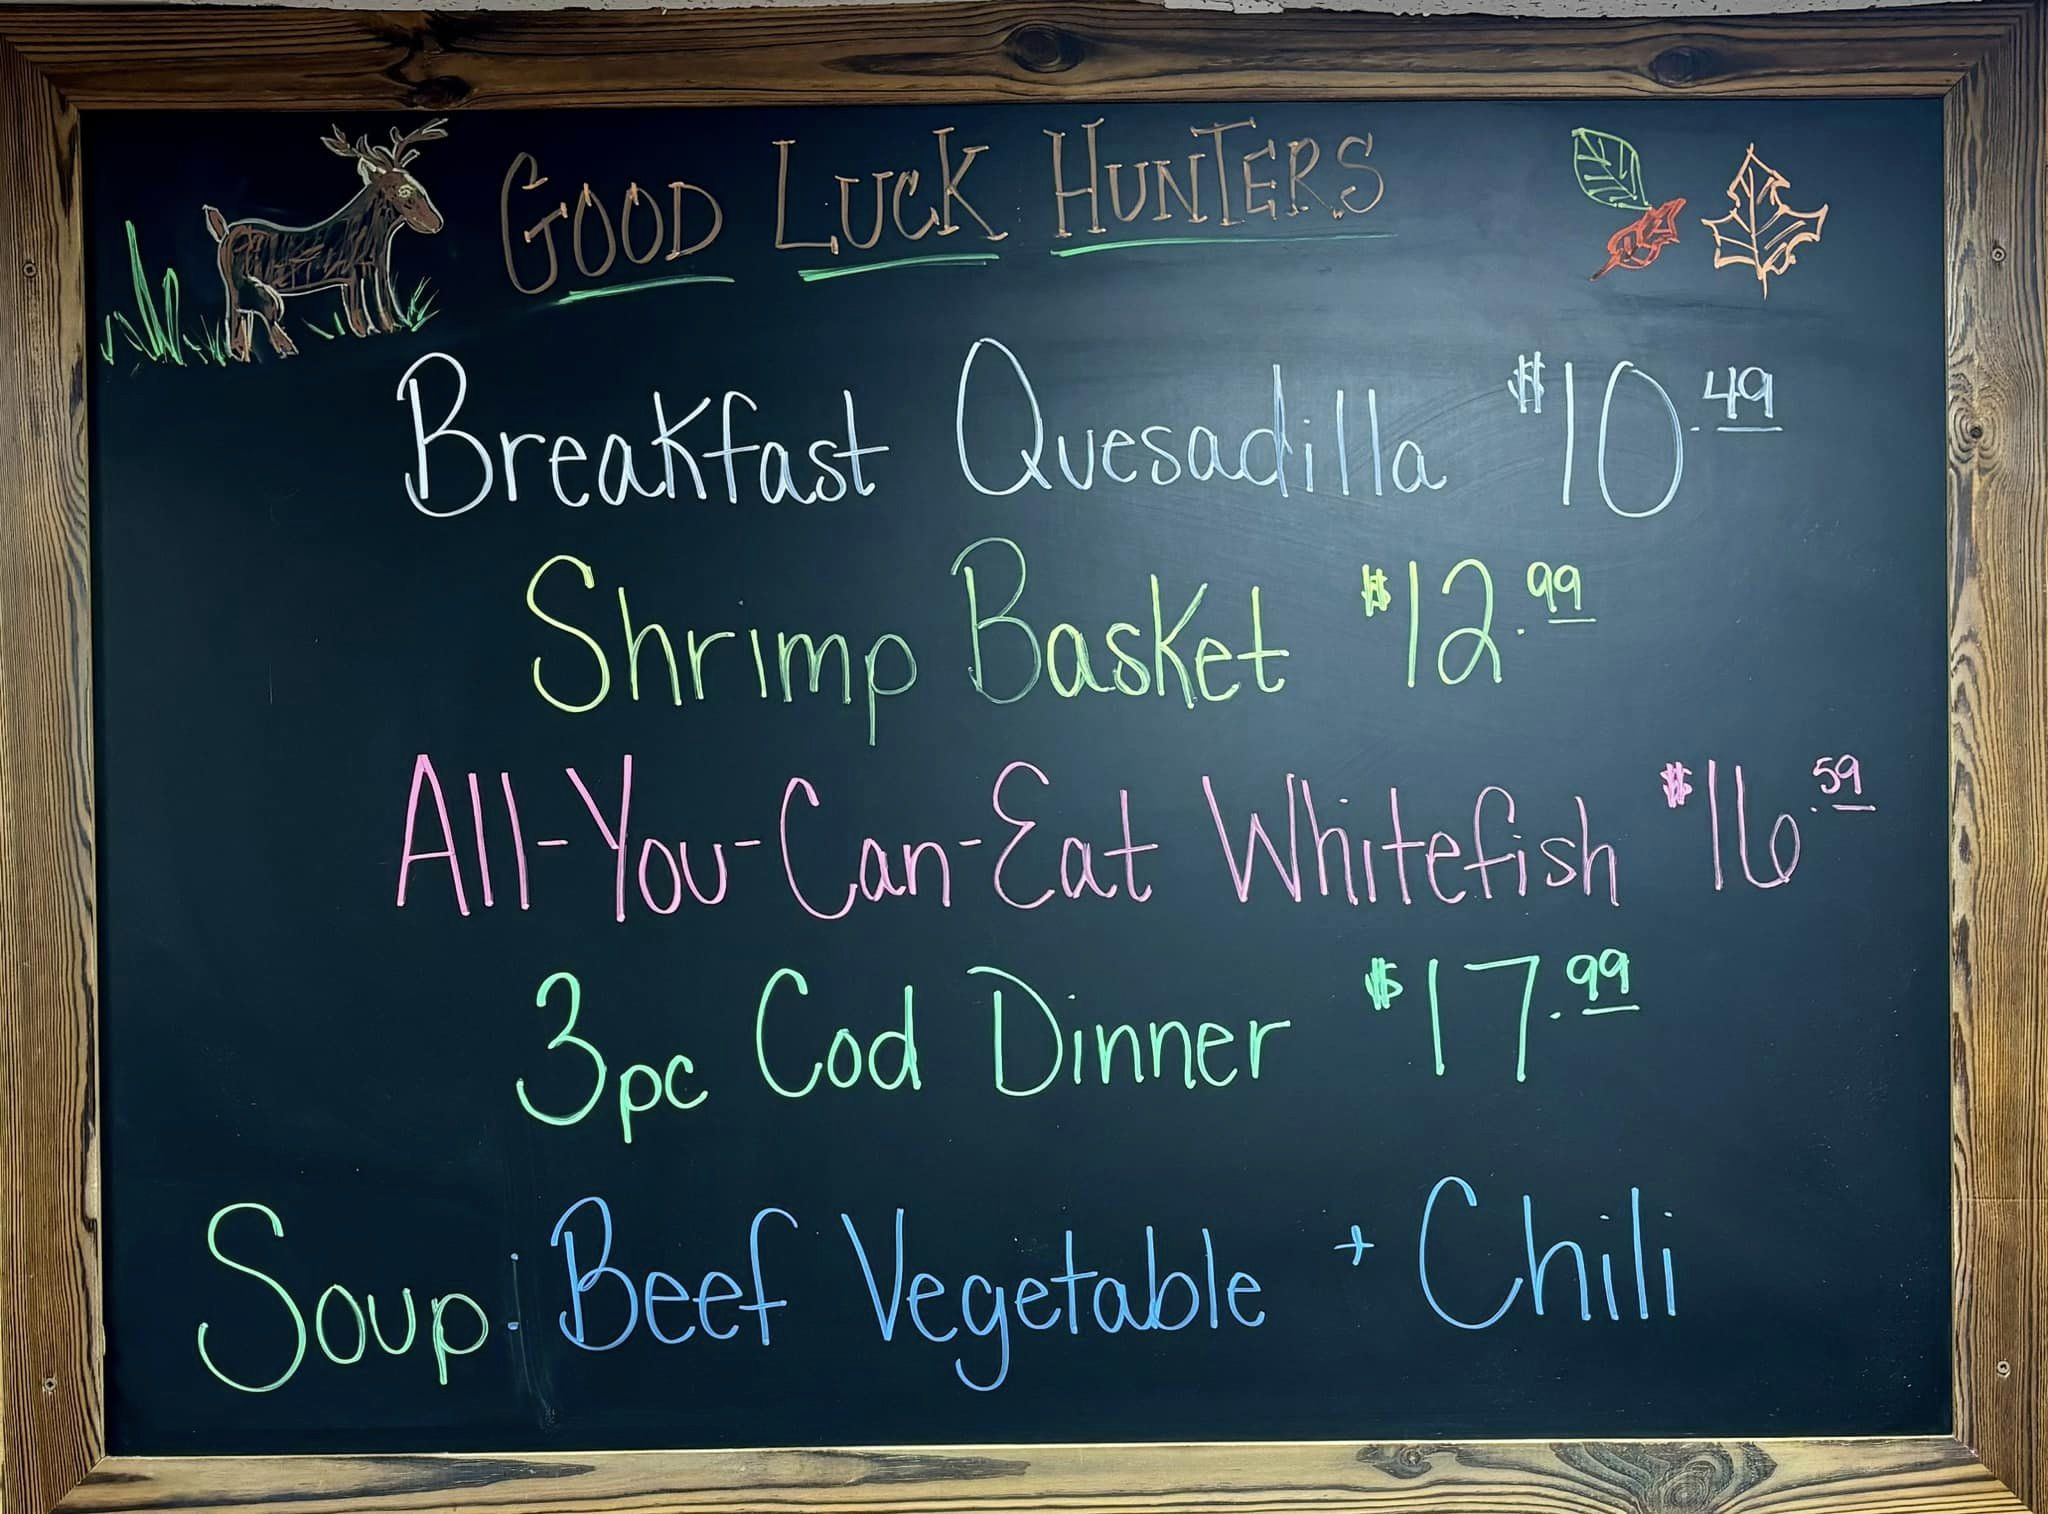 GOOD LUCK HUNTERS
Breakfast Quesadilla $10.49
Shrimp Basket $12.99
All-You-Can-Eat Whitefish $16.59
3pc Cod Dinner $17.99
Soup: Beef Vegetable + Chili